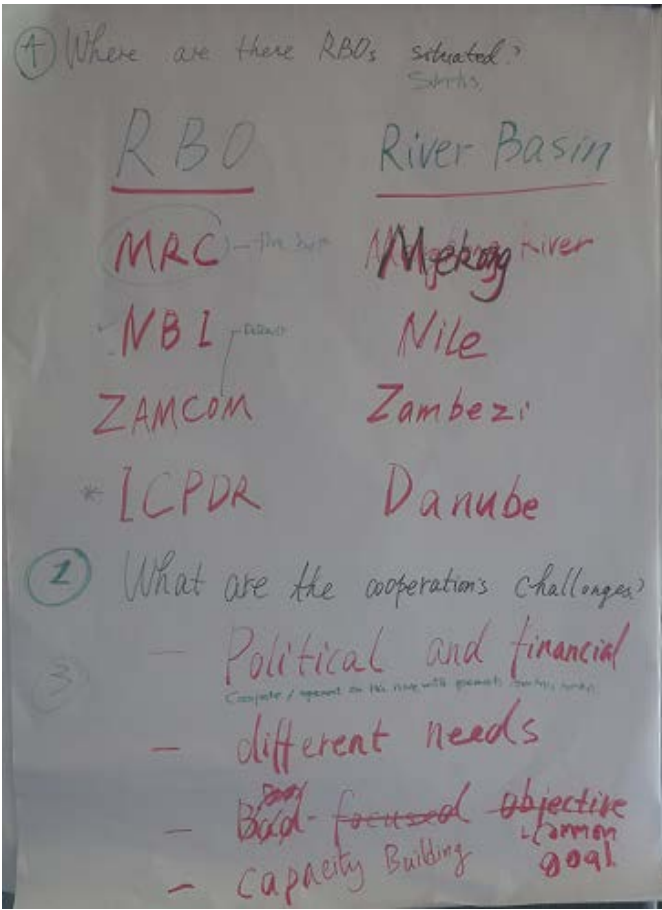 1 Where are there RBOs situated?
RBO River Basin
MRC Mekong River
NBI Nile
ZAMCOM Zambezi
* ICPDR Danube
2 What are the cooperation's challenges?
3
- Political and financial
- different needs
- focused objective
common
- Capacity Building goal